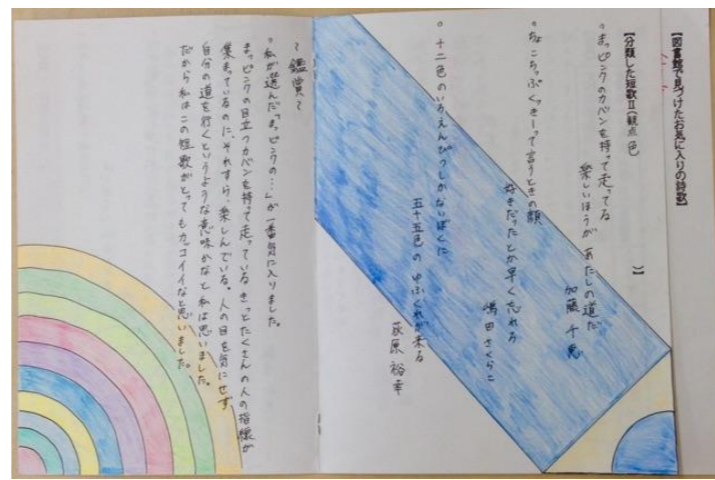 【図書館で見つけたお気に入りの詩歌】
【分類した短歌Ⅱ(観点 色 )】
。まっピンクのカバンを持って走ってる
楽しいほうがあたしの道だ
加藤千恵
。ちょこちっぷくっきーって言うときの顔
好きだったとか早く忘れろ
嶋田さくらこ
。十二色のいろえんぴつしかないぼくに
五十五色のゆふぐれが来る
荻原裕幸
~鑑賞~
。私が選んだ「まっピンクの…」が一番気に入りました。
まっピンクの目立つカバンを持って走っている きっとたくさんの人の指線が
集まっているのに、それすら、楽しんでいる。人の目を気にせず
自分の道を行くというような意味かなと私は思いました。
だから私はこの短歌がとってもカッコイイなと思いました。